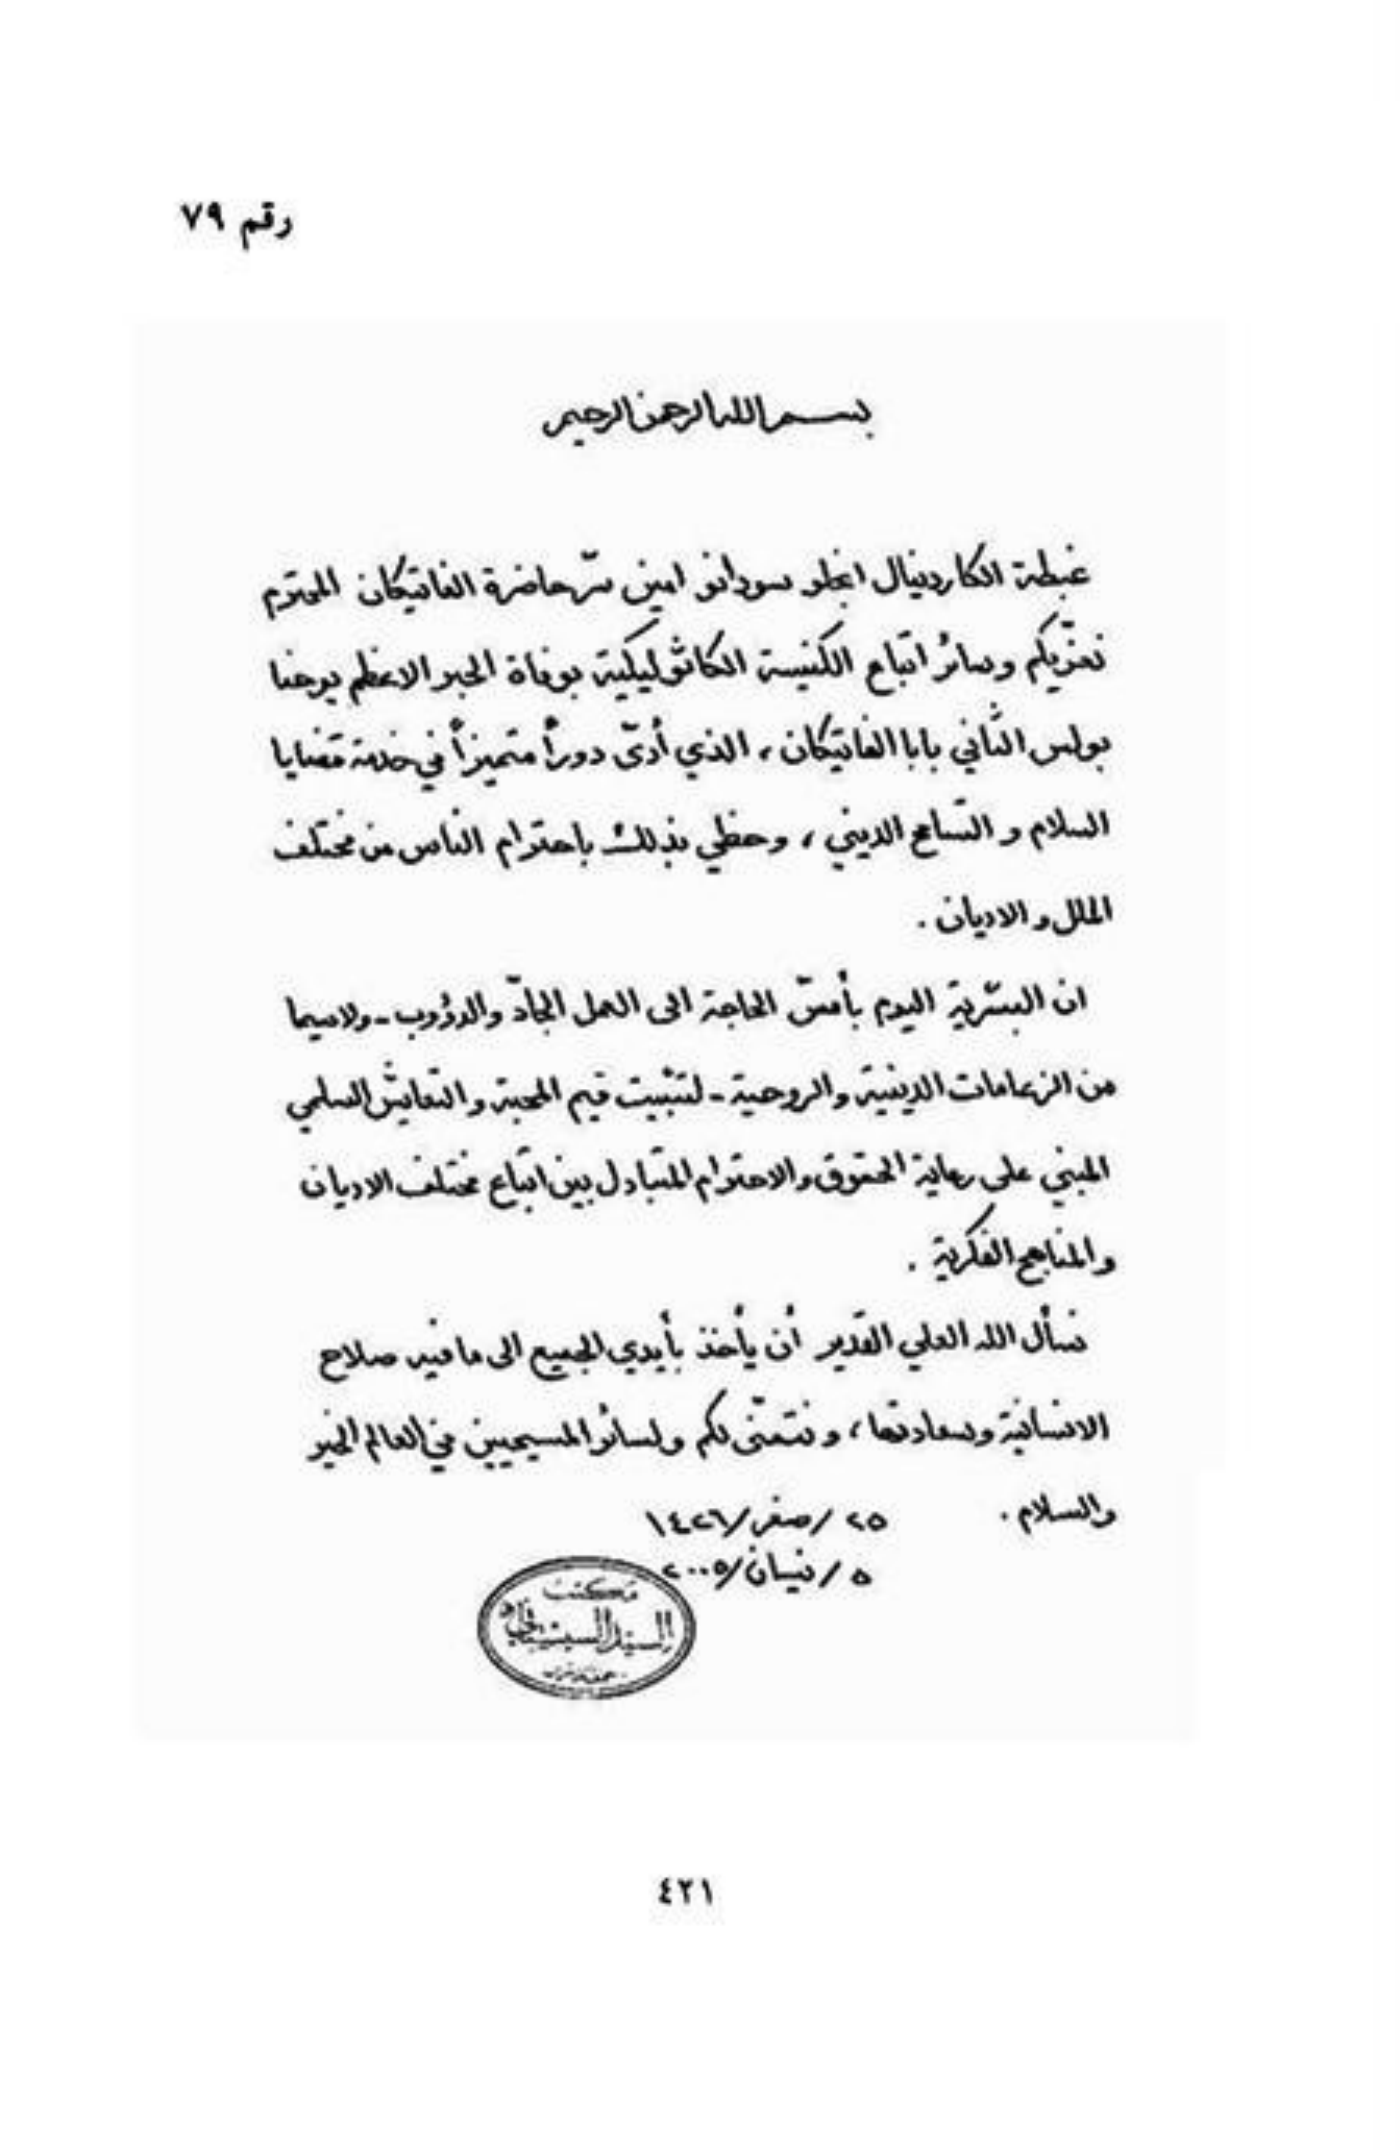 رقم ٧٩
بسم الله الرحمن الرحيم
غبطة الكاردينال انجلو سودانو امين سّر حاضرة الفاتيكان المحترم
نعزّيكم وسائر اتباع الكنيسة الكاثوليكية بوفاة الحبر الاعظم يوحنا
بولس الثاني بابا الفاتيكان ، الذي أدّى دوراً متميزاً في خدمة قضايا
السلام و التسامح الديني ، وحظي بذلك باحترام الناس من مختلف
الملل و الاديان .
ان البشرية اليوم بأمسّ الحاجة الى العمل الجادّ والدؤوب - ولاسيما
من الزعامات الدينية والروحية - لتثبيت قيم المحبة و التعايش السلمي
المبني على رعاية الحقوق والاحترام المتبادل بين اتباع مختلف الاديان
والمناهج الفكرية .
نسأل الله العلي القدير أن يأخذ بأيدي الجميع الى ما فيه صلاح
الانسانية وسعادتها ، ونتمنّى لكم ولسائر المسيحيين في العالم الخير
والسلام .
٢٥ / صفر / ١٤٢٦
٥ / نيسان / ٢٠٠٥
مكتب
السيد السيستاني
٤٢١